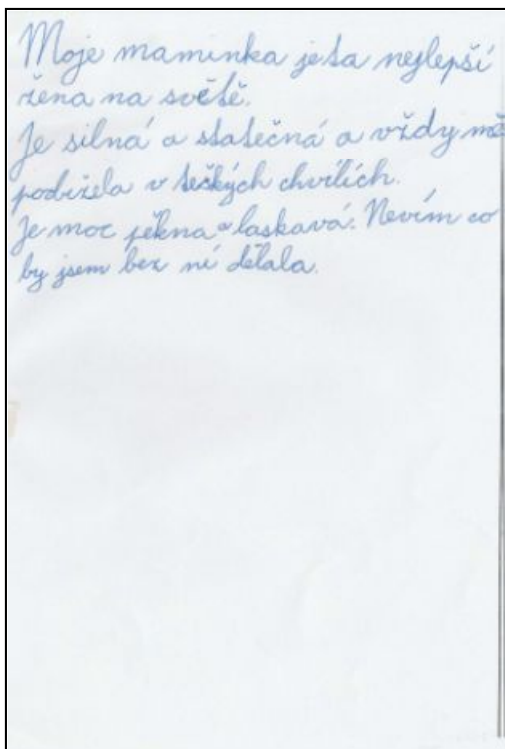 Moje maminka je ta nejlepší
žena na světě.
Je silná a statečná a vždy mě
podržela v težkých chvílích.
Je moc pěkna a laskavá. Nevím co
by jsem bez ní dělala.